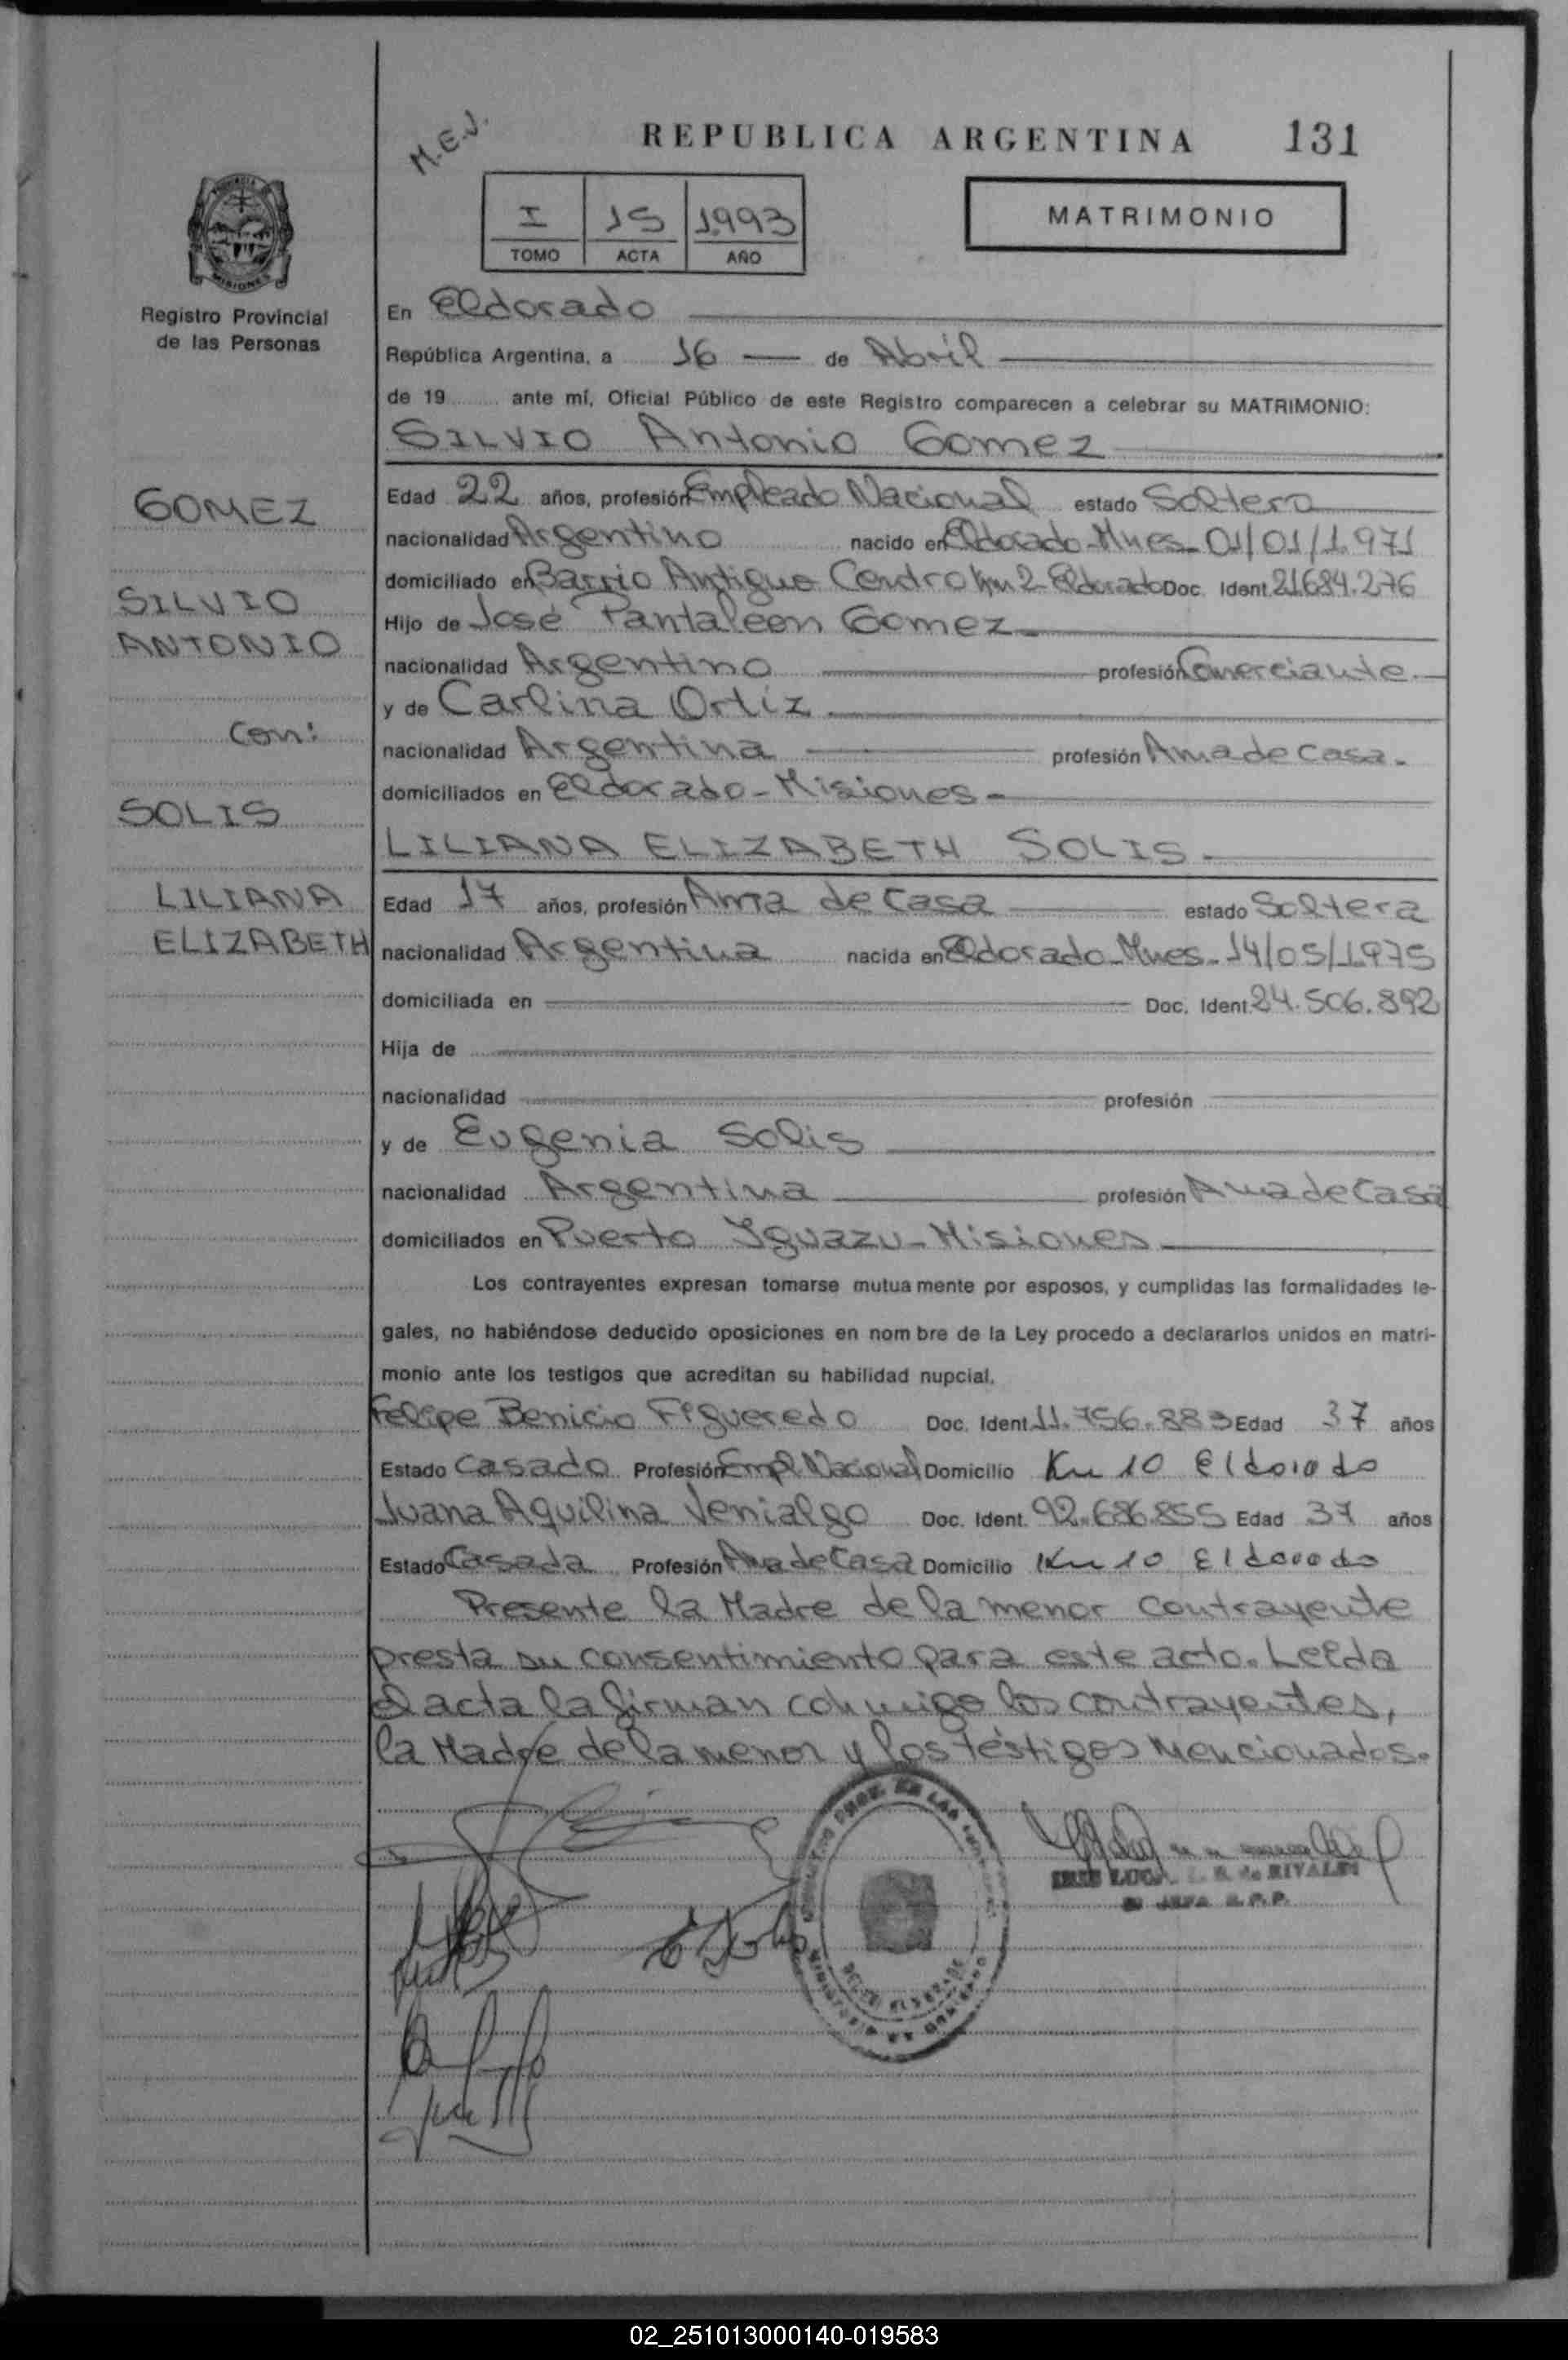 M.E.J.
REPUBLICA ARGENTINA 131
I 15 1993
TOMO ACTA AÑO
MATRIMONIO
PROVINCIA DE
MISIONES
Registro Provincial
de las Personas
En Eldorado
República Argentina, a 16 de Abril
de 19 ante mí, Oficial Público de este Registro comparecen a celebrar su MATRIMONIO:
SILVIO Antonio Gomez
Edad 22 años, profesión Empleado Nacional estado Soltero
nacionalidad Argentino nacido en Eldorado-Mnes- 01/01/1971
domiciliado en Barrio Antiguo Centro km 2 Eldorado Doc. Ident. 21684.276
Hijo de José Pantaleon Gomez
nacionalidad Argentino profesión Comerciante.
y de Carlina Ortiz
nacionalidad Argentina profesión Ama de Casa.
domiciliados en Eldorado - Misiones
LILIANA ELIZABETH SOLIS
Edad 17 años, profesión Ama de Casa estado Soltera
nacionalidad Argentina nacida en Eldorado-Mnes- 14/05/1975
domiciliada en Doc. Ident. 24.506.892
Hija de
nacionalidad profesión
y de Eugenia Solis
nacionalidad Argentina profesión Ama de Casa
domiciliados en Puerto Iguazu-Misiones
Los contrayentes expresan tomarse mutua mente por esposos, y cumplidas las formalidades le-
gales, no habiéndose deducido oposiciones en nom bre de la Ley procedo a declararlos unidos en matri-
monio ante los testigos que acreditan su habilidad nupcial.
Felipe Benicio Figueredo Doc. Ident. 11.756.883 Edad 37 años
Estado Casado Profesión Empl Nacional Domicilio Km 10 Eldorado
Juana Aquilina Venialgo Doc. Ident. 92.686.855 Edad 37 años
Estado Casada Profesión Ama de Casa Domicilio Km 10 Eldorado
Presente la Madre de la menor contrayente
presta su consentimiento para este acto. Leida
el acta la firman conmigo los contrayentes,
la Madre de la menor y los testigos mencionados.
GOMEZ
SILVIO
ANTONIO
Con:
SOLIS
LILIANA
ELIZABETH
de RIVALDI
JEFA R.P.P.
02_251013000140-019583